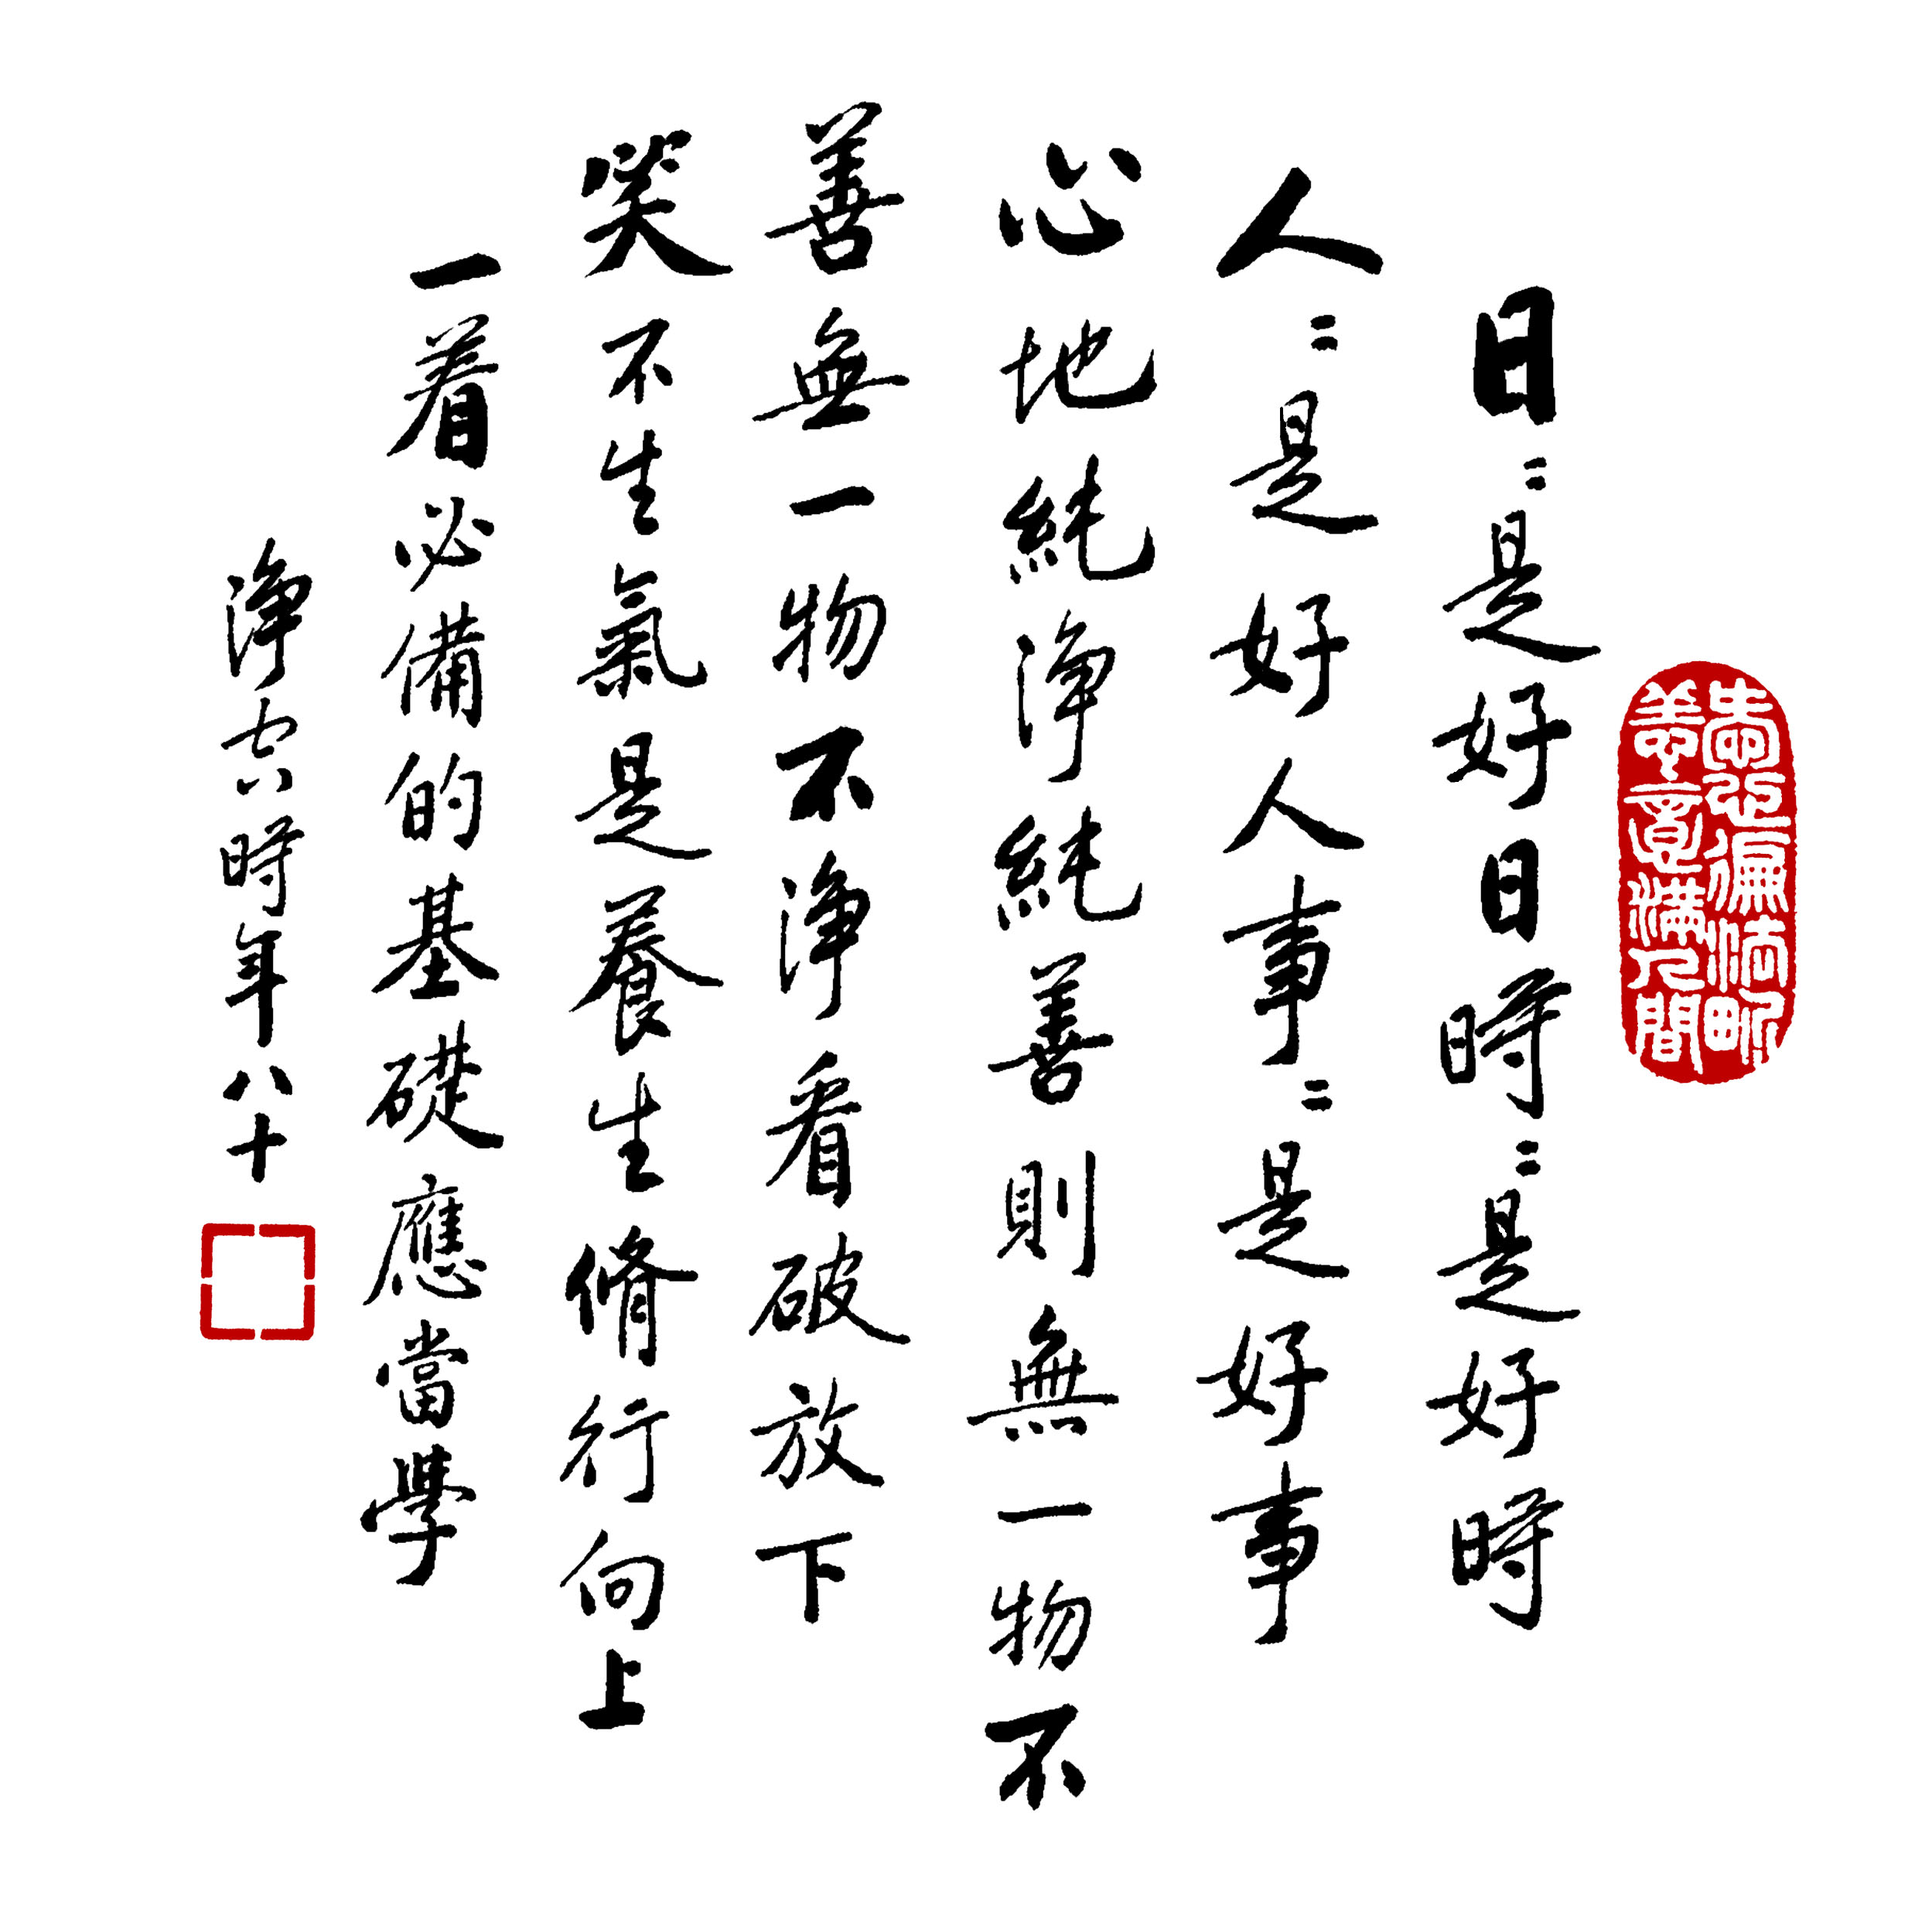 遍法界
善意滿人間
日〻是好日時〻是好時
人〻是好人事〻是好事
心地純淨純善則無一物不
善無一物不淨看破放下
咲不生氣是養生脩行向上
一着必備的基礎應當學
淨空時年八十